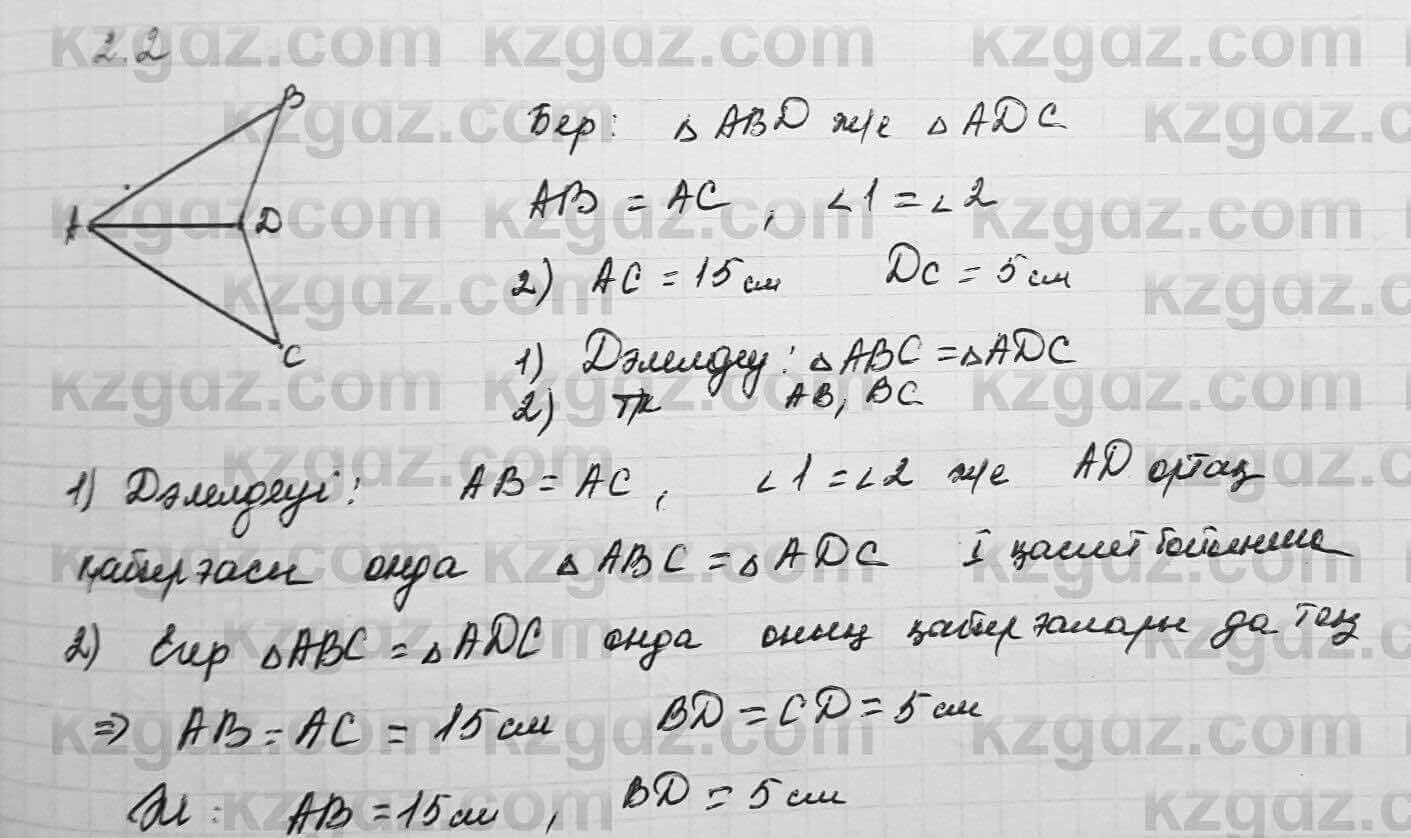 2.2
B
A
D
C
Бер: △ABD ж/е △ADC
AB = AC, ∠1 = ∠2
2) AC = 15 см DC = 5 см
1) Дәлелдеу: △ABC = △ADC
2) т/к AB, BC
1) Дәлелдеуі: AB = AC, ∠1 = ∠2 ж/е AD ортақ
қабырғасы онда △ABC = △ADC I қасиет бойынша
2) Егер △ABC = △ADC онда оның қабырғалары да тең
⇒ AB = AC = 15 см BD = CD = 5 см
Ж: AB = 15 см, BD = 5 см
kzgaz.com